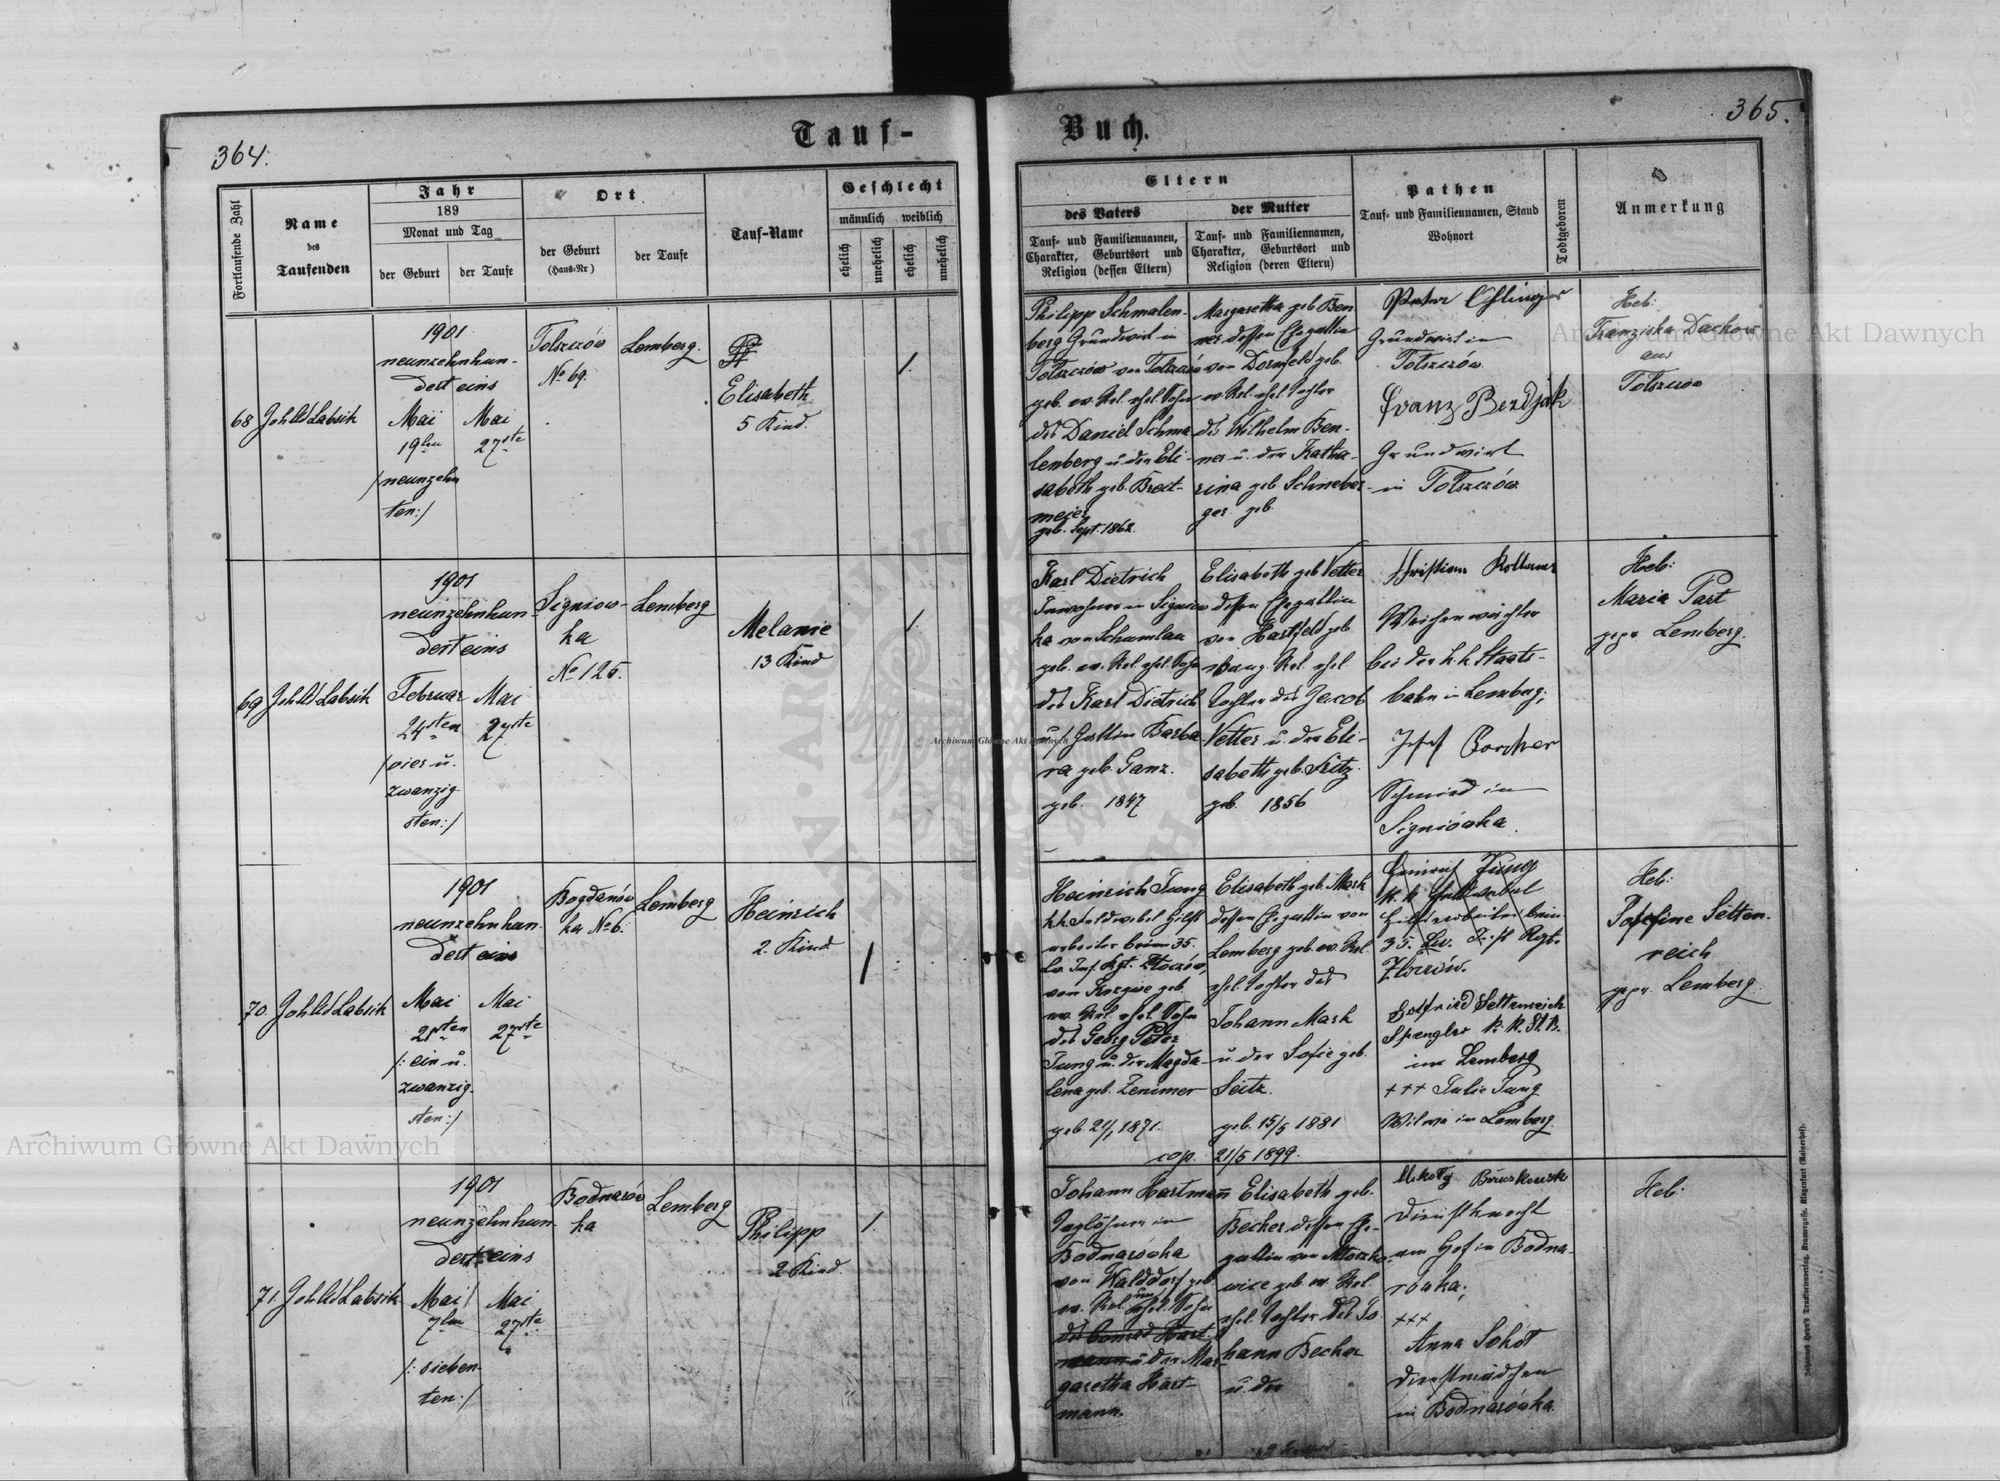 364.
Tauf-
Fortlaufende Zahl
Name
des
Taufenden
Jahr
189
Monat und Tag
der Geburt
der Taufe
Ort
der Geburt
(Haus-Nr)
der Taufe
Tauf-Name
Geschlecht
männlich weiblich
ehelich
unehelich
ehelich
unehelich
68
1901
neunzehnhun-
dert eins
Mai
19ten
/neunzehn
ten:/
Mai
27ste
Tolszczów
No 69.
Lemberg.
Elisabeth
5 Kind.
1.
69
1901
neunzehnhun-
dert eins
Februar
24sten
/vier u.
zwanzig
sten:/
Mai
27ste
Signiow-
ka
No 125.
Lemberg
Melanie
13 Kind
1.
70.
1901
neunzehnhun-
dert eins
Mai
21sten
/: ein u.
zwanzig-
sten:/
Mai
27ste
Bogdanów
ka No 6.
Lemberg
Heinrich
2. Kind.
1
71.
1901
neunzehnhun-
dert eins
Mai
7ten
/: sieben-
ten:/
Mai
27ste
Bodnarów
ka
Lemberg
Philipp
2 Kind.
1.
Buch.
365.
Eltern
des Vaters
Tauf- und Familiennamen,
Charakter, Geburtsort und
Religion (dessen Eltern)
der Mutter
Tauf- und Familiennamen,
Charakter, Geburtsort und
Religion (deren Eltern)
Pathen
Tauf- und Familiennamen, Stand
Wohnort
Todtgeboren
Anmerkung
Philipp Schmalen-
berg Grundwirt in
Tolszczów von Tolszczów
geb. ev. Rel. ehel. Sohn
des Daniel Schma
lenberg u. der Eli-
sabeth geb. Breit-
meier
geb. Sept. 1862.
Margaretha geb. Ben
ner dessen Ehegattin
von Dornfeld geb.
ev. Rel. ehel. Tochter
des Wilhelm Ben-
ner u. der Katha-
rina geb. Schneber-
ger geb.
Grundwirt in
Tolszczów.
Franz
Grundwirt
in Tolszczów
Heb:
Franziska Dackow
aus
Tolszczow
Karl Dietrich
Inwohner in Signiow
ka von
geb. ev. Rel. ehel. Sohn
des Karl Dietrich
Gattin Barba
ra geb. Ganz.
geb. 1847
Elisabeth geb. Vetter
dessen Ehegattin
von Hartfeld geb.
evang. Rel. ehel.
Tochter des Jacob
Vetter u. der Eli-
sabeth geb. Seitz.
geb. 1856
Christian
Weichenwächter
bei der k.k. Staats-
bahn in Lemberg;
Josef
Schmied in
Signiówka.
Heb:
Maria Part
gepr. Lemberg.
Heinrich Jung
k.k. Feldwebel Hilfs
arbeiter beim 35.
Lw. Inf. Rgt. Zloczów,
geb.
ev. Rel. ehel. Sohn
des Georg Peter
Jung u. der Magda-
lena geb.
geb. 21/1 1871.
Elisabeth geb. Mark
dessen Ehegattin von
Lemberg geb. ev. Rel.
ehel. Tochter des
Johann Mark
u. der Sofie geb.
Seitz.
geb. 15/5 1881
cop. 21/5 1899.
Heinrich Jung
k. k. Feldwebel
Hilfsarbeiter beim
35. Lw. Inf. Rgt.
Zloczów.
Gottfried Settenreich
Spengler k. k. St. B.
in Lemberg
+++ Julie Jung
Witwe in Lemberg.
Heb:
Josefine Setten-
reich
gepr. Lemberg.
Johann Hartmann
Taglöhner in
Bodnarówka
von Walddorf geb.
ev. Rel. unehel. Sohn
des Conrad Hart-
mann u. der Mar-
garetha Hart-
mann.
Elisabeth geb.
Becher dessen Ehe-
gattin von
geb. ev. Rel.
ehel. Tochter des Jo
hann Becher
u. der
Dienstknecht
am Hof in Bodna-
rówka;
+++
Anna
Dienstmädchen
in Bodnarówka.
Heb:
Archiwum Główne Akt Dawnych
Archiwum Główne Akt Dawnych
Archiwum Główne Akt Dawnych